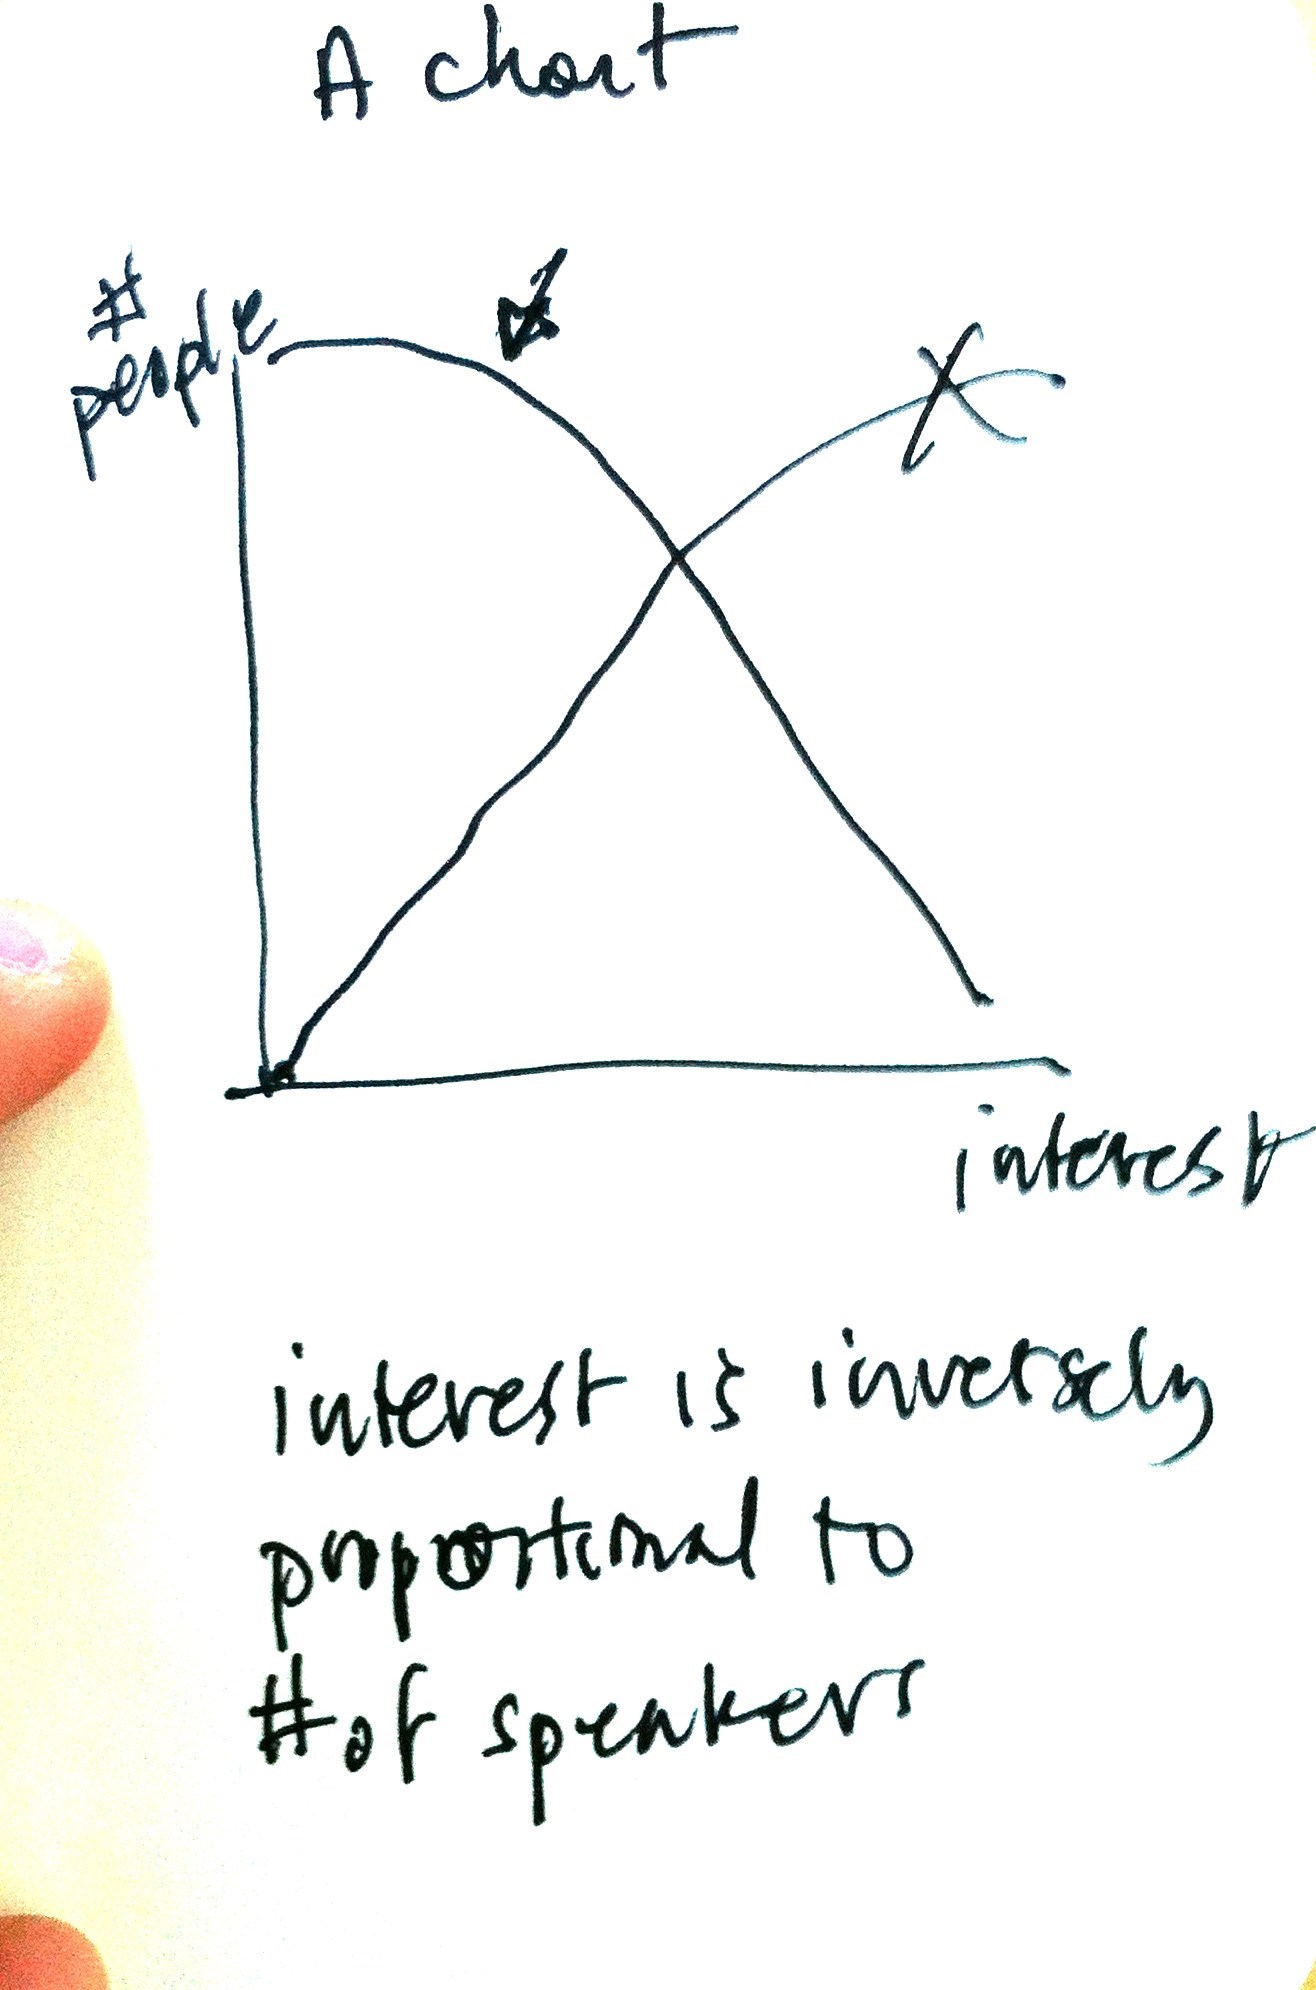 A chart
#
people
interest
interest is inversely
proportional to
# of speakers